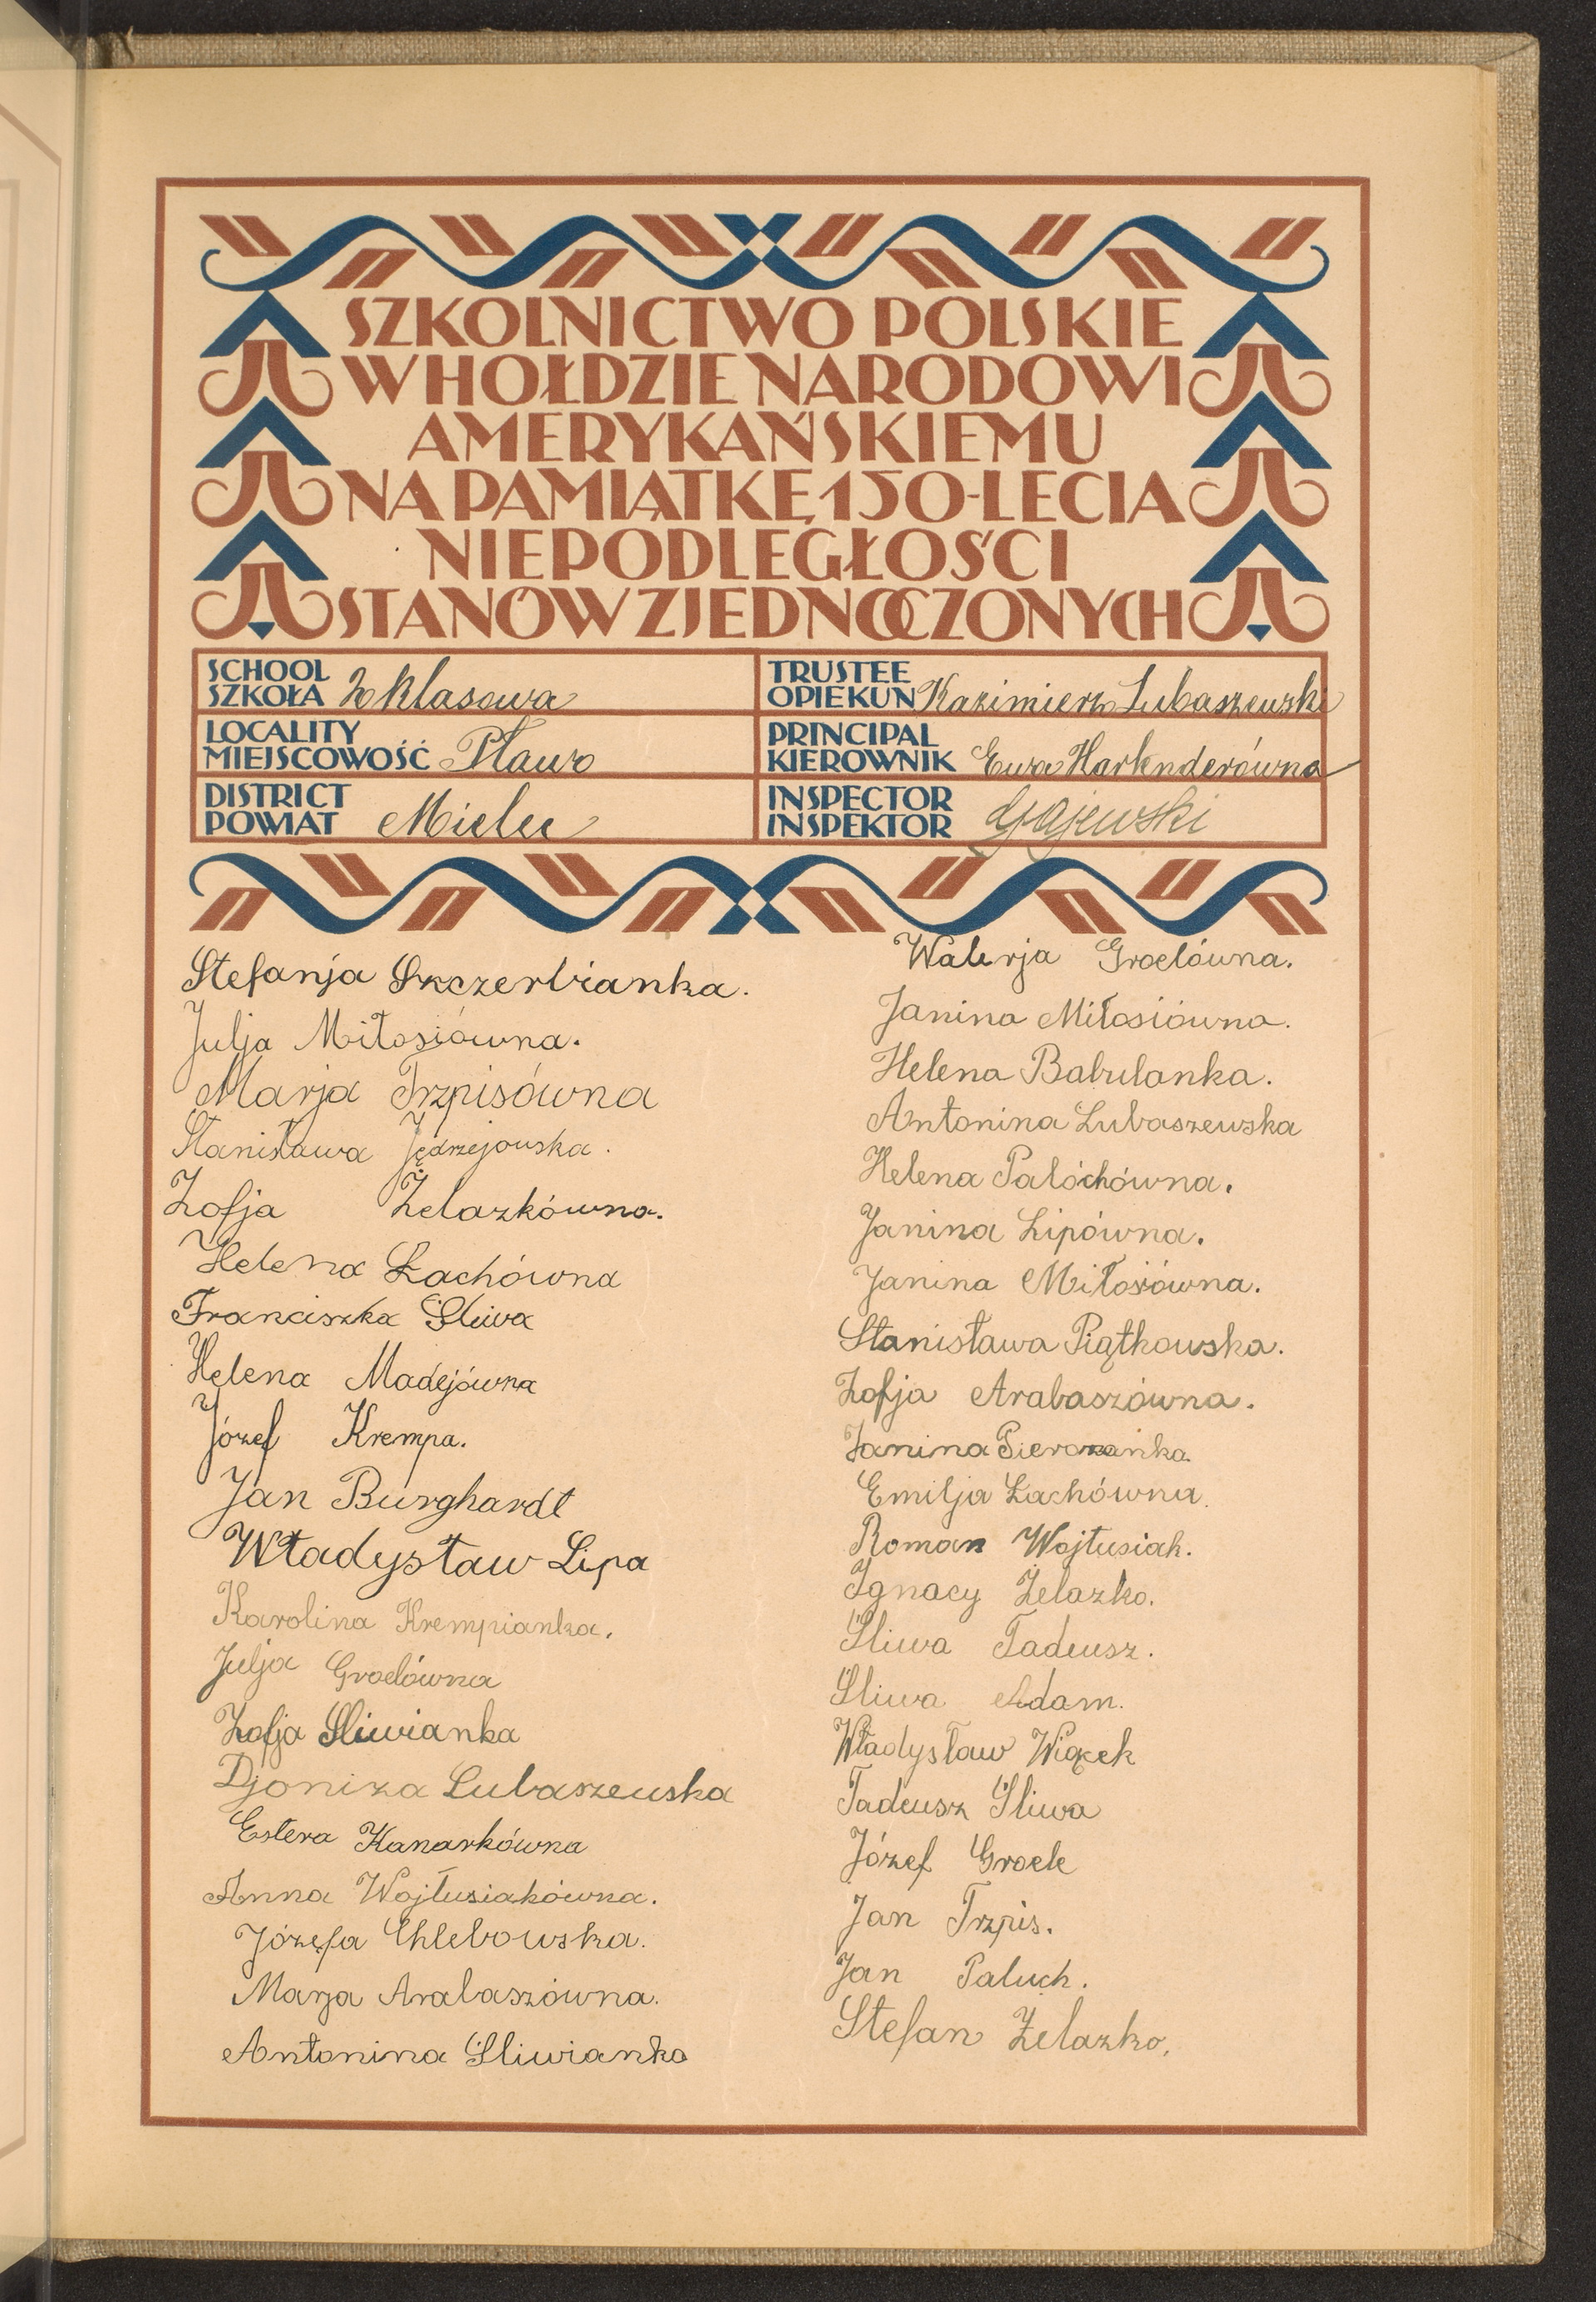 SZKOLNICTWO POLSKIE
W HOŁDZIE NARODOWI
AMERYKAŃSKIEMU
NA PAMIĄTKĘ 150-LECIA
NIEPODLEGŁOŚCI
STANÓW ZJEDNOCZONYCH
SCHOOL
SZKOŁA 2 klasowa
TRUSTEE
OPIEKUN Kazimierz Lubaszewski
LOCALITY
MIEJSCOWOŚĆ Pławo
PRINCIPAL
KIEROWNIK Ewa Harlenderówna
DISTRICT
POWIAT Mielec
INSPECTOR
INSPEKTOR Gajewski
Stefanja Szczerbianka.
Julja Miłosiówna.
Marja Trzpisówna
Stanisława Jędrzejowska.
Zofja Żelazkówna.
Helena Łachówna
Franciszka Śliwa
Helena Madejówna
Józef Krempa.
Jan Burghardt
Władysław Lipa
Karolina Krempianka.
Julja Groelówna
Zofja Śliwianka
Djoniza Lubaszewska
Estera Kanarkówna
Anna Wojtusiakówna.
Józefa Chlebowska.
Marja Arabaszówna.
Antonina Śliwianka
Walerja Groelówna.
Janina Miłosiówna.
Helena Babulanka.
Antonina Lubaszewska
Helena Palóchówna.
Janina Lipówna.
Janina Miłosiówna.
Stanisława Piątkowska.
Zofja Arabaszówna.
Janina
Emilja Łachówna.
Roman Wojtusiak.
Ignacy Żelazko.
Śliwa Tadeusz.
Śliwa Adam.
Władysław Wiącek
Tadeusz Śliwa
Józef Groele
Jan Trzpis.
Jan Paluch.
Stefan Żelazko.